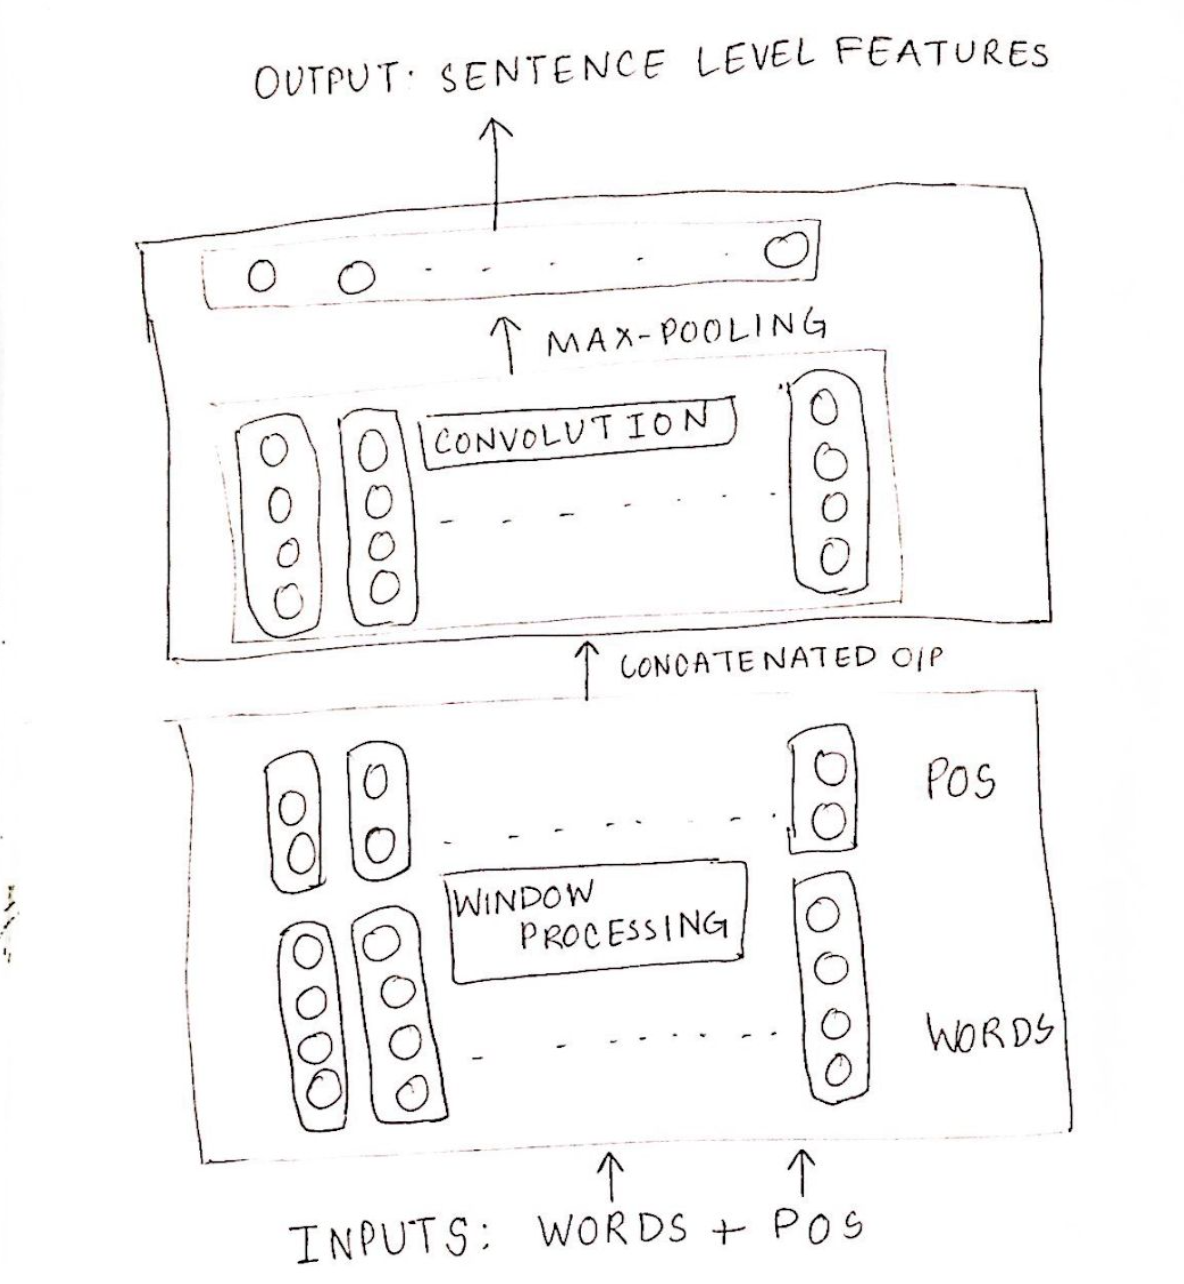 OUTPUT: SENTENCE LEVEL FEATURES
MAX-POOLING
CONVOLUTION
CONCATENATED O/P
POS
WINDOW
PROCESSING
WORDS
INPUTS: WORDS + POS